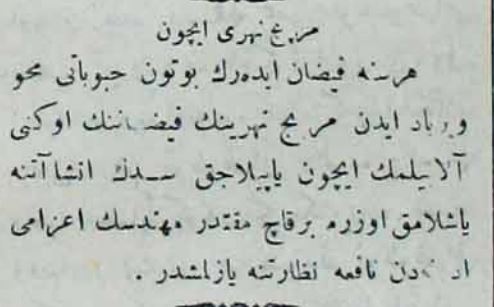 مریج نهری ایچون
هرسنه فیضان ایده‌رك بوتون حبوباتی محو
و برباد ایدن مریج نهرینك فیضاننك اوكنی
آلابیلمك ایچون یاپیلاجق سدك انشاآتنه
باشلامق اوزره برقاچ مقتدر مهندسك اعزامی
نافعه نظارتنه یازلمشدر .